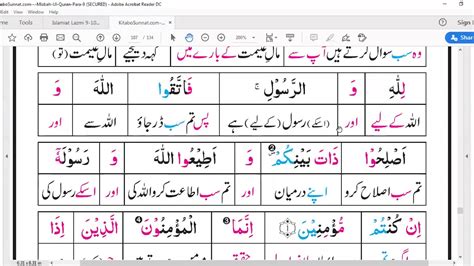 KitaboSunnat.com---Misbah-Ul-Quran-Para-9 (SECURED) - Adobe Acrobat Reader DC
Islamiat Lazmi 9-10... KitaboSunnat.com---... ×
107 / 134
وہ سب سوال کرتے ہیں آپ سے مالِ غنیمت کے بارے میں مالِ غنیمت
لِلّٰهِ وَ الرَّسُوْلِ ۚ فَاتَّقُوا اللّٰهَ وَ
اللہ کے لیے اور (اسکے) رسول (کے لیے) ہے پس تم سب ڈر جاؤ اللہ سے اور
اَصْلِحُوْا ذَاتَ بَيْنِكُمْ ② وَ اَطِيْعُوا اللّٰهَ وَ رَسُوْلَهٗۤ
تم سب اصلاح کرو اپنے درمیان اور تم سب اطاعت کرو اللہ کی اور اسکے رسول کی
اِنْ كُنْتُمْ مُّؤْمِنِيْنَ ① اِنَّمَا ③ الْمُؤْمِنُوْنَ ④ الَّذِيْنَ اِذَا